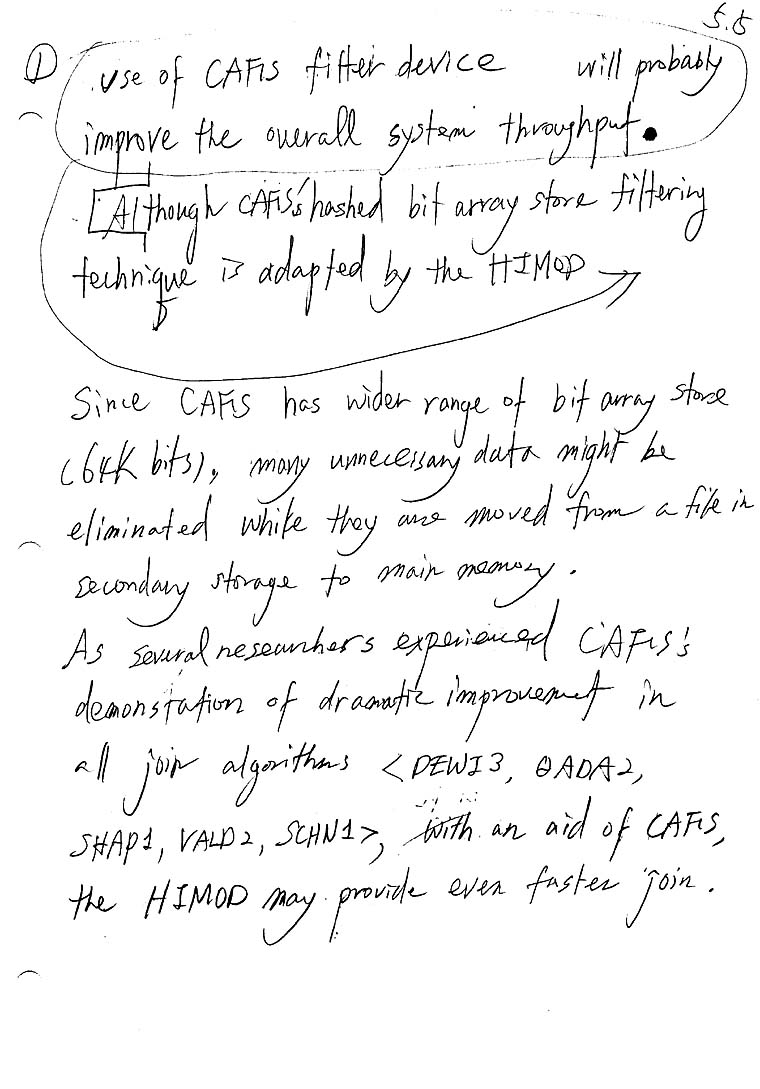 5.5
① use of CAFS filter device will probably
improve the overall system throughput.
Although CAFS's hashed bit array store filtering
technique is adapted by the HIMOD
Since CAFS has wider range of bit array store
(64K bits), many unnecessary data might be
eliminated while they are moved from a file in
secondary storage to main memory.
As several researchers experienced CAFS's
demonstation of dramatic improvement in
all join algorithms <DEWI3, QADA2,
SHAP1, VALD2, SCHN1>, with an aid of CAFS,
the HIMOD may provide even faster join.